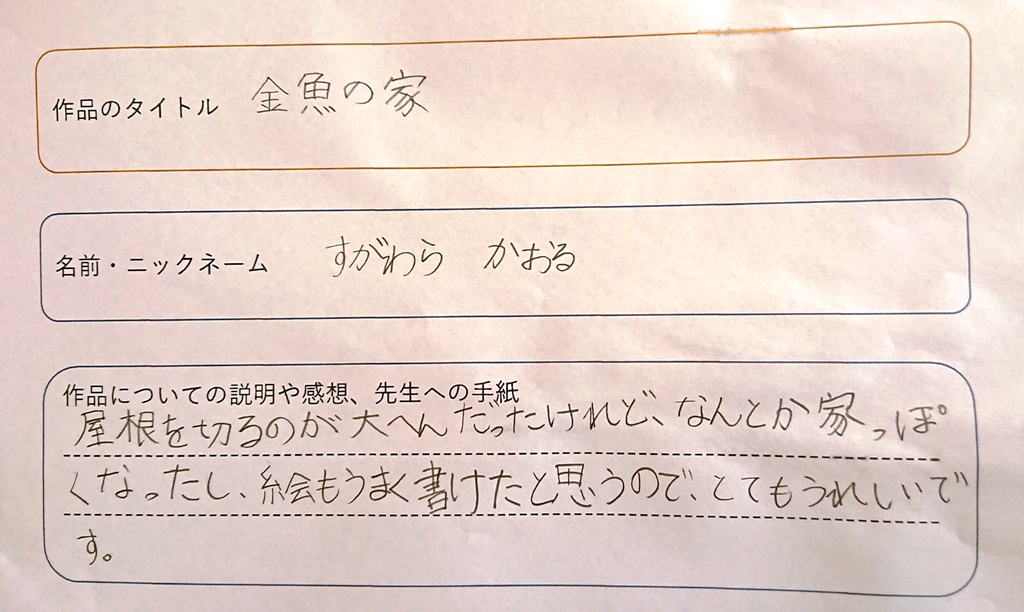 作品のタイトル 金魚の家
名前・ニックネーム すがわら かおる
作品についての説明や感想、先生への手紙
屋根を切るのが大へんだったけれど、なんとか家っぽ
くなったし、絵もうまく書けたと思うので、とてもうれしいで
す。